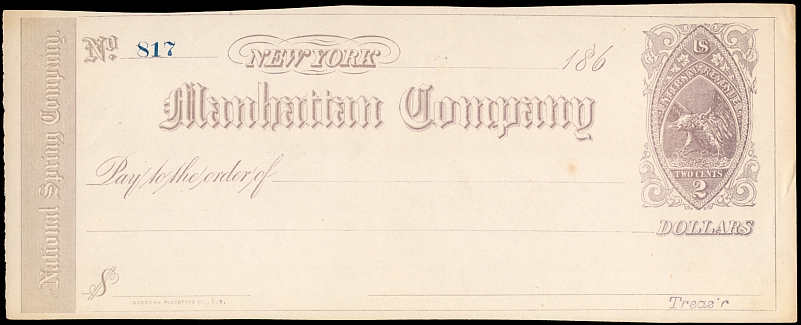 National Spring Company.
No. 817
NEW YORK
186
Manhattan Company
Pay to the order of
U.S.
INTERNAL REVENUE
TWO CENTS
2
DOLLARS
$
Treas'r